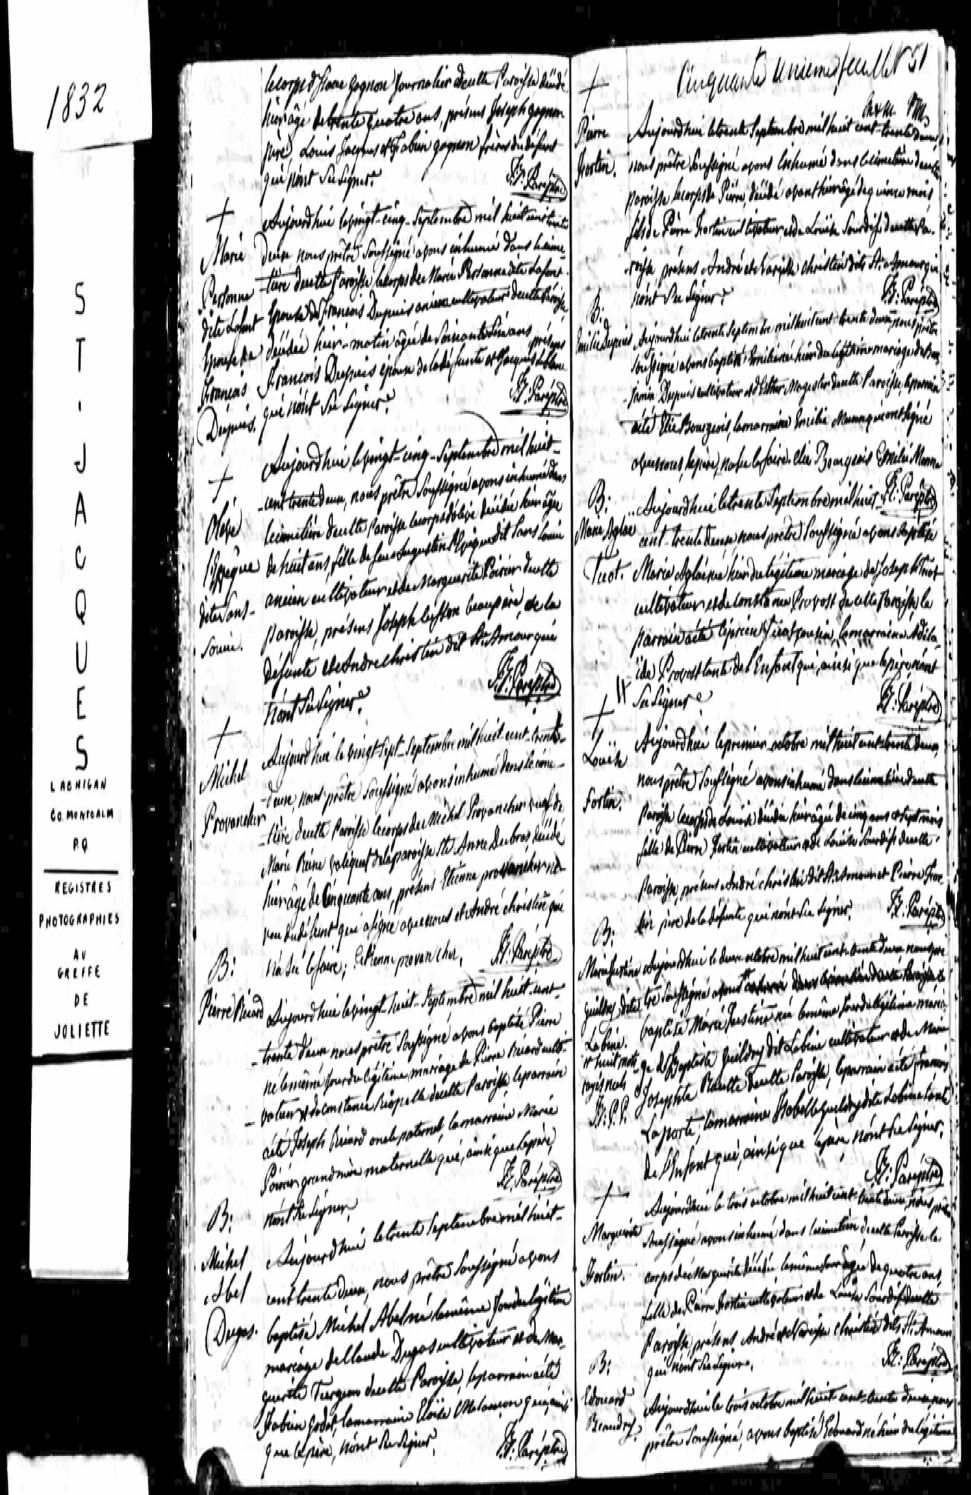 1832
ST-JACQUES
LACHIGAN
Co. MONTCALM
P.Q
REGISTRES
PHOTOGRAPHIES
AU
GREFFE
DE
JOLIETTE
le corps d' gagnon Journalier de cette Paroisse décédé
hier âgé de trente quatre ans, présens Joseph gagnon
père, Louis Jacques et fabien gagnon frères du défunt
qui n'ont Su Signer.
J. Paré ptre
+
Marie
Personne
dite Lafont
Epouse de
Francois
Dupuis.
Aujourd'hui le vingt-cinq-Septembre mil huit cent trente
deux nous prêtre Soussigné avons inhumé dans le cime-
tière de cette Paroisse le corps de Marie Personne dite Lafont
Epouse de Francois Dupuis ancien cultivateur de cette Paroisse
décédée hier-matin âgée de Soixante ans présens
Francois Dupuis époux de la défunte et Jacques
qui n'ont Su Signer.
J. Paré ptre
+
dite Sans-
Souci.
Aujourd'hui le vingt-cinq-Septembre mil huit-
cent trente deux, nous prêtre Soussigné avons inhumé dans
le cimetière de cette Paroisse le corps d' décédée hier âgée
de huit ans, fille de feu Augustin dit Sans Souci
ancien cultivateur et de Marguerite Poirier de cette
paroisse, présens Joseph beaupère de la
défunte et André Christin dit St. Amour qui
n'ont Su Signer.
J. Paré ptre
+
Michel
Provancher
Aujourd'hui le vingt Sept-Septembre mil huit cent-trente-
deux nous prêtre Soussigné avons inhumé dans le cime-
tière de cette Paroisse le corps de Michel Provancher veuf de
Marie Reine de la paroisse Ste Anne décédé
hier âgé de Cinquante ans, présens Etienne provancher ne-
veu du défunt qui a signé avec nous et André christin qui
n'a Su le faire; Etienne provancher,
J. Paré ptre
B:
Pierre Ricard
Aujourd'hui le vingt-huit-Septembre mil huit-cent-
trente deux nous prêtre Soussigné avons baptisé Pierre
né le même jour du légitime mariage de Pierre Ricard culti-
vateur et de Constance Riopelle de cette Paroisse, le parrain
a été Joseph Ricard oncle paternel, la marraine Marie
Poirier grand'mère maternelle qui, ainsi que le père,
n'ont Su Signer.
J. Paré ptre
B:
Michel
Abel
Dugas.
Aujourd'hui le trente Septembre mil huit-
cent trente deux, nous prêtre Soussigné avons
baptisé Michel Abel né le même jour du légitime
mariage de Claude Dugas cultivateur et de Mar-
guerite Turgeon de cette Paroisse, le parrain a été
fabien Godet, la marraine Eloïse Melancon qui, ainsi
que le père, n'ont Su Signer.
J. Paré ptre
Cinquante unieme feuillet 51
+
Pierre
Fortin.
Aujourd'hui le trente Septembre mil huit cent-trente deux
nous prêtre Soussigné avons inhumé dans le cimetière de cette
paroisse le corps de Pierre, décédé avant hier âgé de quinze mois
fils de Pierre Fortin cultivateur et de Louise Sourdif de cette Pa-
roisse présens André et Narcisse christin dits St. Amour qui
n'ont Su Signer.
J. Paré ptre
B.
Emilie Dupuis
Aujourd'hui le trente Septembre mil huit cent-trente deux nous prêtre
Soussigné avons baptisé Emilie née hier du légitime mariage de Ben-
jamin Dupuis cultivateur et d'Esther Magnan de cette Paroisse, le parrain
a été Elie Bourgeois, la marraine Emilie qui ont Signé
avec nous, le père, n'a su le faire. Elie Bourgeois Emilie
J. Paré ptre
B:
Marie Aglaé
Aujourd'hui le trente Septembre mil huit-
cent-trente deux nous prêtre Soussigné avons baptisé
Marie Aglaé née hier du légitime mariage de Joseph
cultivateur et de Constance Provost de cette Paroisse, le
parrain a été Cyprien, la marraine Adela-
ïde Provost tante de l'Enfant qui, ainsi que le père, n'ont
Su Signer.
J. Paré ptre
+
Louise
Fortin.
Aujourd'hui le premier octobre mil huit cent trente deux
nous prêtre Soussigné avons inhumé dans le cimetière de cette
Paroisse le corps de Louise décédée hier âgée de cinq ans et Sept mois
fille de Pierre Fortin cultivateur et de Louise Sourdif de cette
Paroisse, présens André christin dit St. Amour et Pierre For-
tin père de la défunte qui n'ont Su Signer.
J. Paré ptre
B:
Marie Justine
guildry dite
Labine.
J. P. P.
Aujourd'hui le deux octobre mil huit cent-trente deux nous prê-
tre Soussigné avons
baptisé Marie Justine née le même jour du légitime maria-
ge de Baptiste Guildry dit Labine cultivateur et de Marie
Josephte de cette Paroisse, le parrain a été francois
Laporte, la marraine Isabelle Guildry dite Labine tante
de l'Enfant qui, ainsi que le père n'ont Su Signer.
J. Paré ptre
+
Marguerite
Fortin.
Aujourd'hui le trois octobre mil huit cent-trente deux, nous prêtre
Soussigné avons inhumé dans le cimetière de cette Paroisse le
corps de Marguerite décédée le même jour âgée de quatre ans,
fille de Pierre Fortin cultivateur et de Louise Sourdif de cette
Paroisse, présens André et Narcisse christin dits St. Amour
qui n'ont Su Signer.
J. Paré ptre
B:
Edouard
Beaudry.
Aujourd'hui le trois octobre mil huit cent-trente deux, nous
prêtre Soussigné, avons baptisé Edouard né hier du légitime